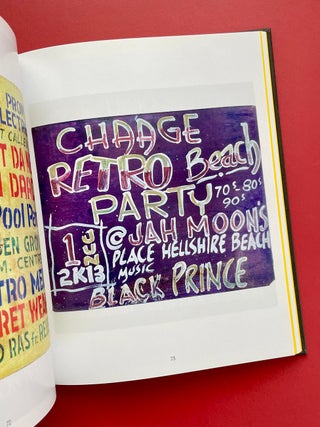 PROM
LECTR
T CALLE
T DA
DAR
Pool Pa
EN GRO
M. CENTR
TRO ME
RET WEA
D RAS fe RE
72
CHAAGE
RETRO Beach
PARTY 70s 80s
90s
1 JUN
2K13
@ JAH MOONS
PLACE HELLSHIRE BEACH
MUSIC
BLACK PRINCE
73